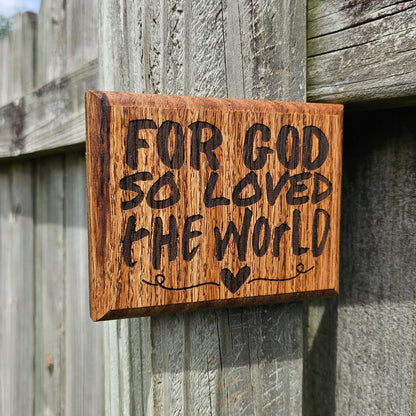 FOR GOD
SO LOVED
the WOrlD